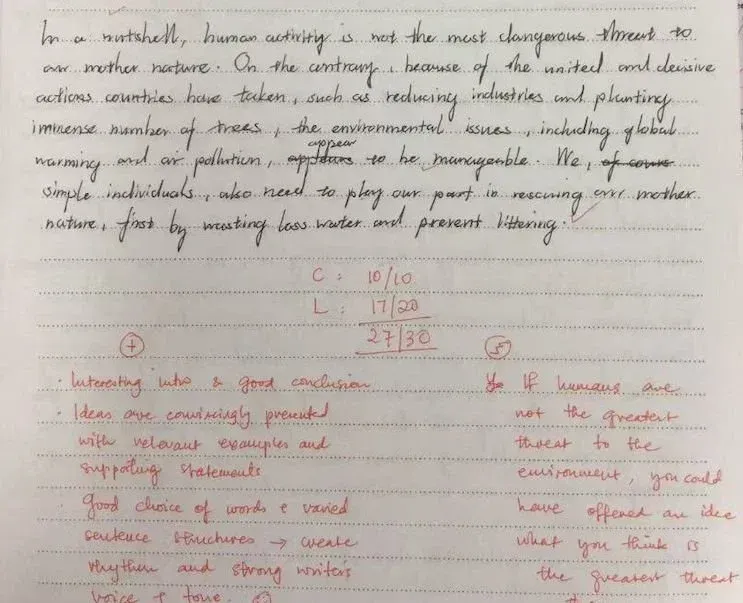 In a nutshell, human activity is not the most dangerous threat to
our mother nature. On the contrary, because of the united and decisive
actions countries have taken, such as reducing industries and planting
immense number of trees, the environmental issues, including global
appear
warming and air pollution, appears to be manageable. We, of course
simple individuals, also need to play our part in rescuing our mother
nature, first by wasting less water and prevent littering.
C : 10/10
L : 17/20
27/30
+
· Interesting intro & good conclusion
· Ideas are convincingly presented
with relevant examples and
supporting statements
good choice of words & varied
sentence structures → create
rhythm and strong writer's
voice & tone.
S
If humans are
not the greatest
threat to the
environment, you could
have offered an idea
what you think is
the greatest threat